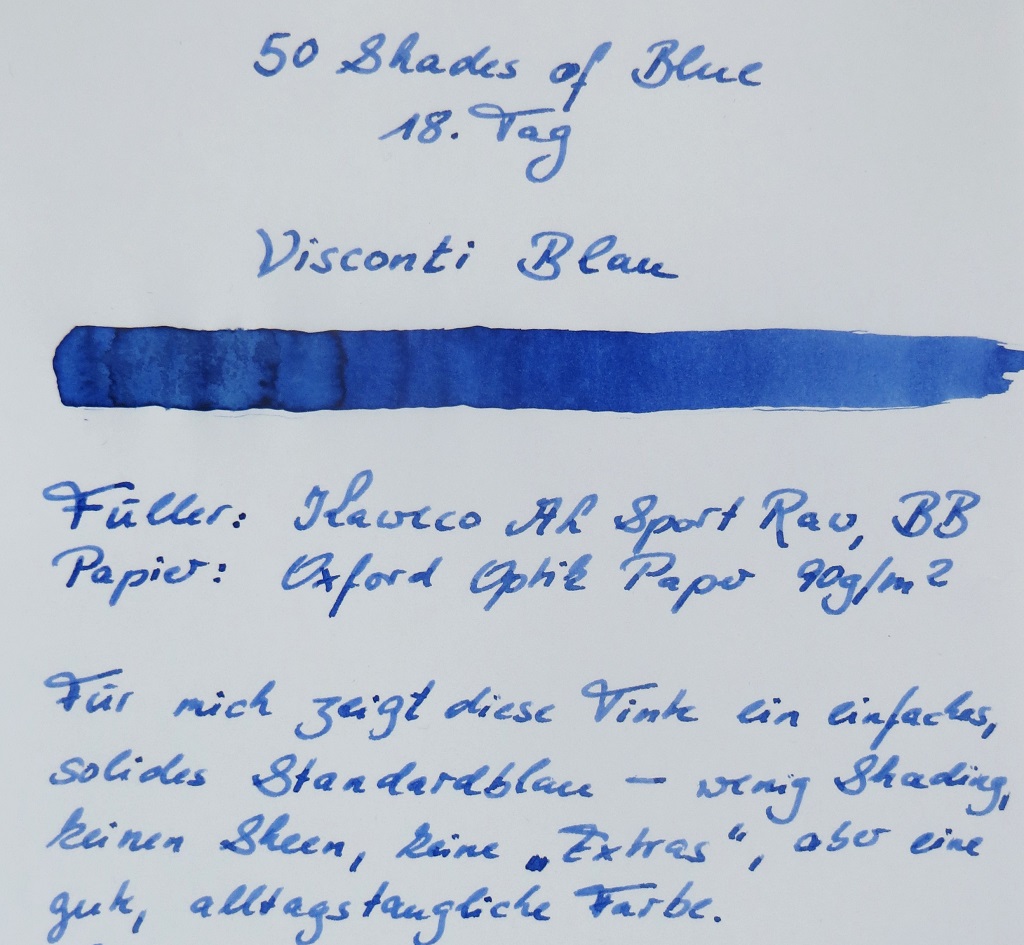 50 Shades of Blue
18. Tag
Visconti Blau
Füller: Kaweco Al Sport Raw, BB
Papier: Oxford Optik Paper 90g/m²
Für mich zeigt diese Tinte ein einfaches,
solides Standardblau – wenig Shading,
keinen Sheen, keine „Extras“, aber eine
gute, alltagstaugliche Farbe.